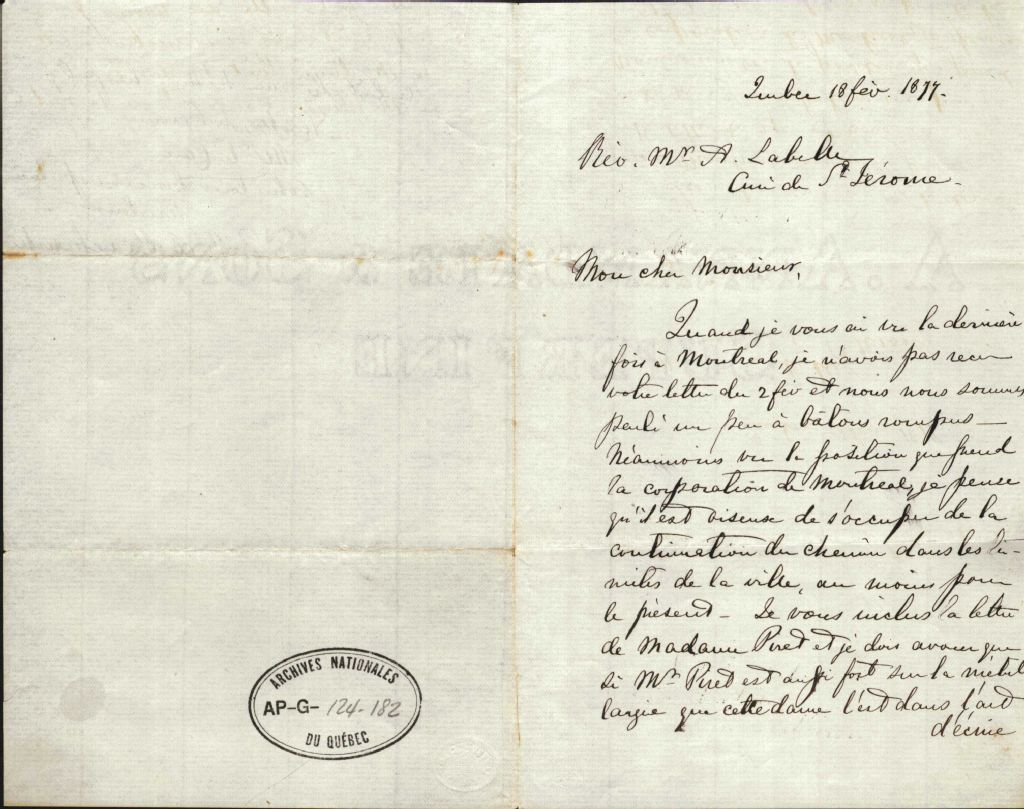 Québec 18 fév. 1877.
Rév. Mr A. Labelle
Curé de St Jérome.
Mon cher Monsieur,
Quand je vous ai vu la dernière
fois à Montreal, je n'avois pas recu
votre lettre du 2 fév et nous nous sommes
parlé un peu à bâtons rompus —
Néanmoins vu la position que prend
la corporation de Montreal, je pense
qu'il est oiseuse de s'occuper de la
continuation du chemin dans les li-
mites de la ville, au moins pour
le présent — Je vous inclus la lettre
de Madame Piret et je dois avouer que
si Mr Piret est aussi fort sur la métal
largie que cette dame l'est dans l'art
d'écrire
ARCHIVES NATIONALES
AP-G- 124-182
DU QUÉBEC